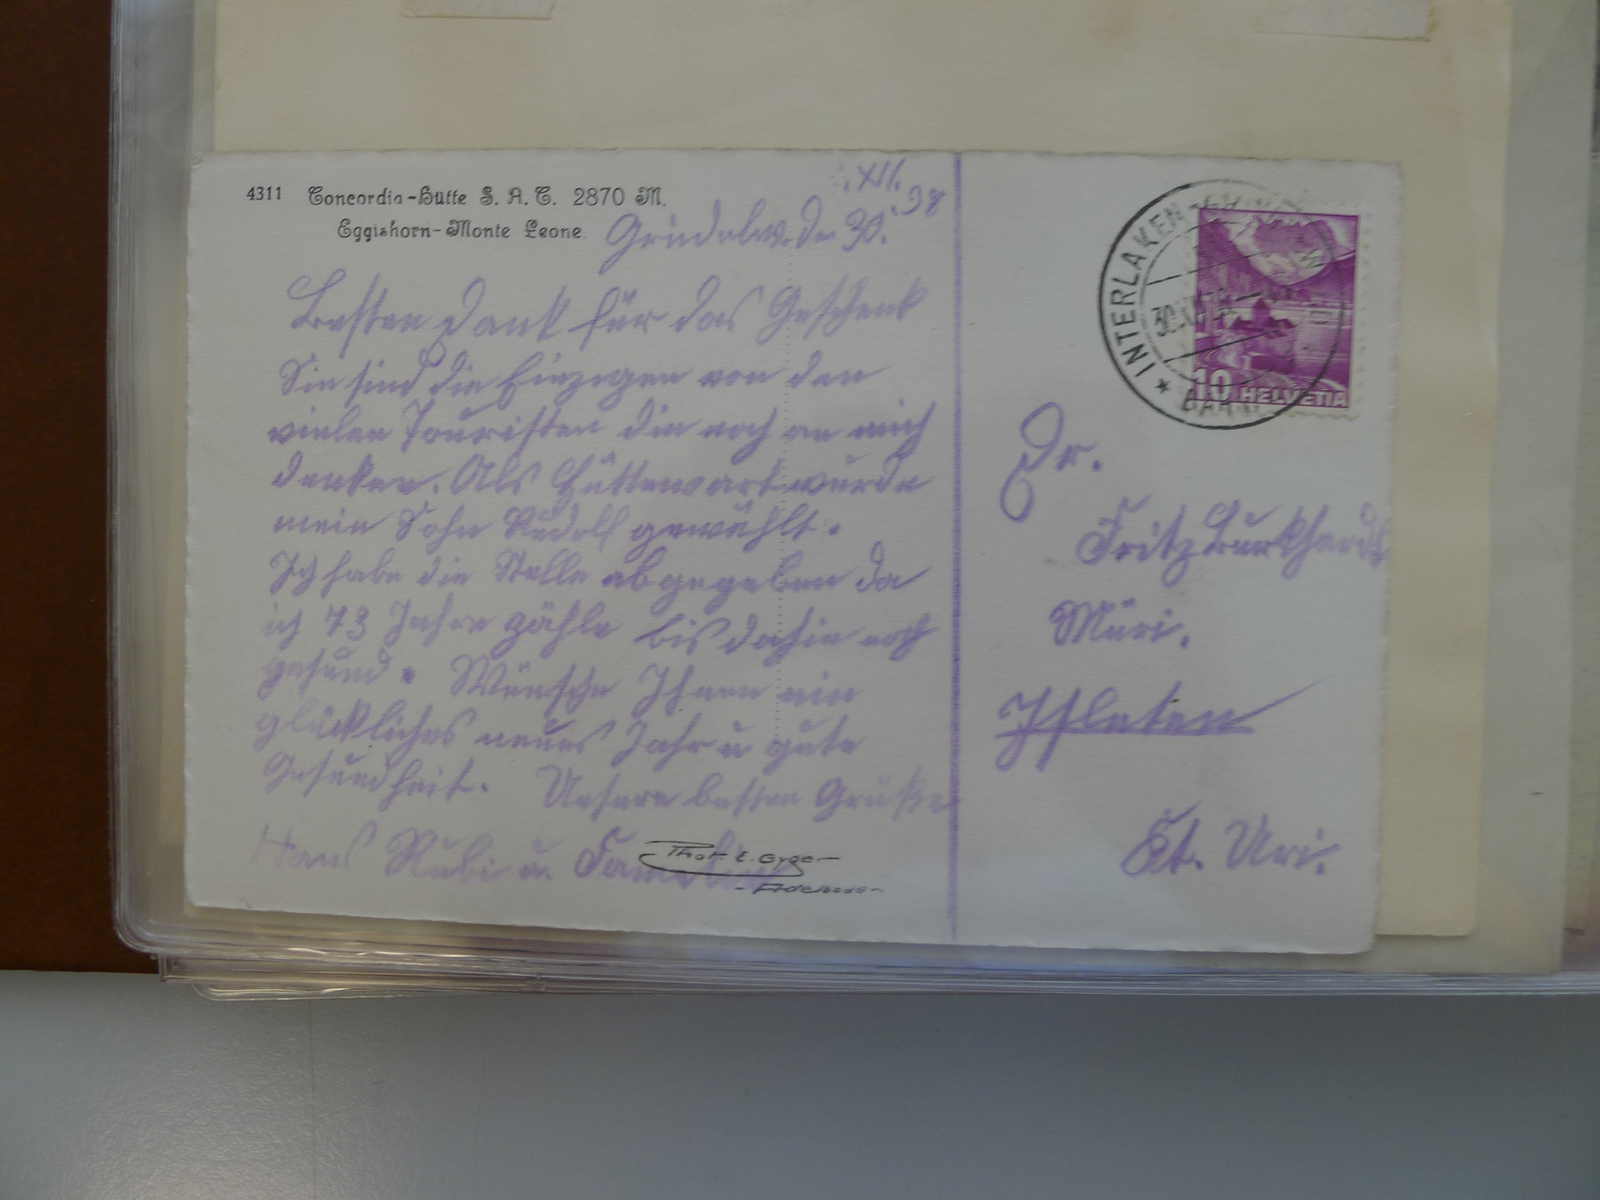 4311 Concordia-Hütte S. A. C. 2870 M.
Eggishorn-Monte Leone.
Grindelw. den 30. XII. 38
Besten Dank für das Geschenk
Sie sind die Einzigen von den
vielen Touristen die noch an mich
denken. Als Hüttenwart wurde
mein Sohn Rudolf gewählt.
Ich habe die Stelle abgegeben da
ich 73 Jahre zähle bis dahin noch
gesund. Wünsche Ihnen ein
glückliches neues Jahr u gute
Gesundheit. Unsere besten Grüsse
Hans Rubi u. Familie
Phot. E. Gyger
- Adelboden -
INTERLAKEN
30. XII.
BAHN
10 HELVETIA
Dr.
Fritz Burkhardt
Müri.
Isleten
Kt. Uri.